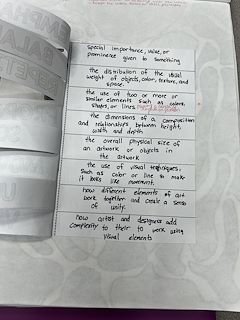 special importance, value, or
prominence given to something
the distribution of the visual
weight of objects, color, texture, and
space.
the use of two or more or
smaller elements such as colors,
shapes, or lines.
the dimensions of a composition
and relationships between height,
width and depth
the overall physical size of
an artwork or objects in
the artwork
the use of visual techniques,
such as color or line to make
it looks like movement.
how different elements of art
work together and create a sense
of unity.
how artist and designers add
complexity to their to work using
visual elements